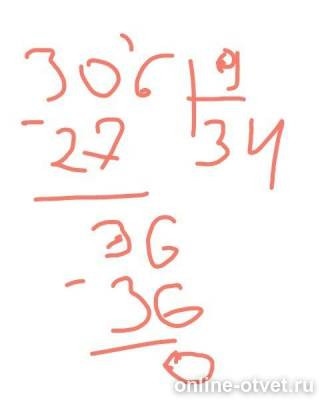 306 9
- 27 34
36
- 36
0
online-otvet.ru